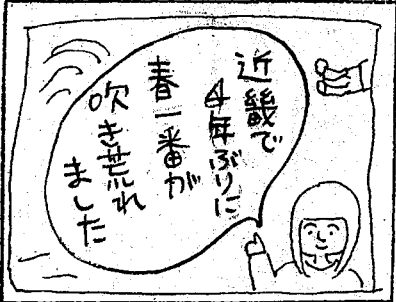 近畿で
4年ぶりに
春一番が
吹き荒れ
ました